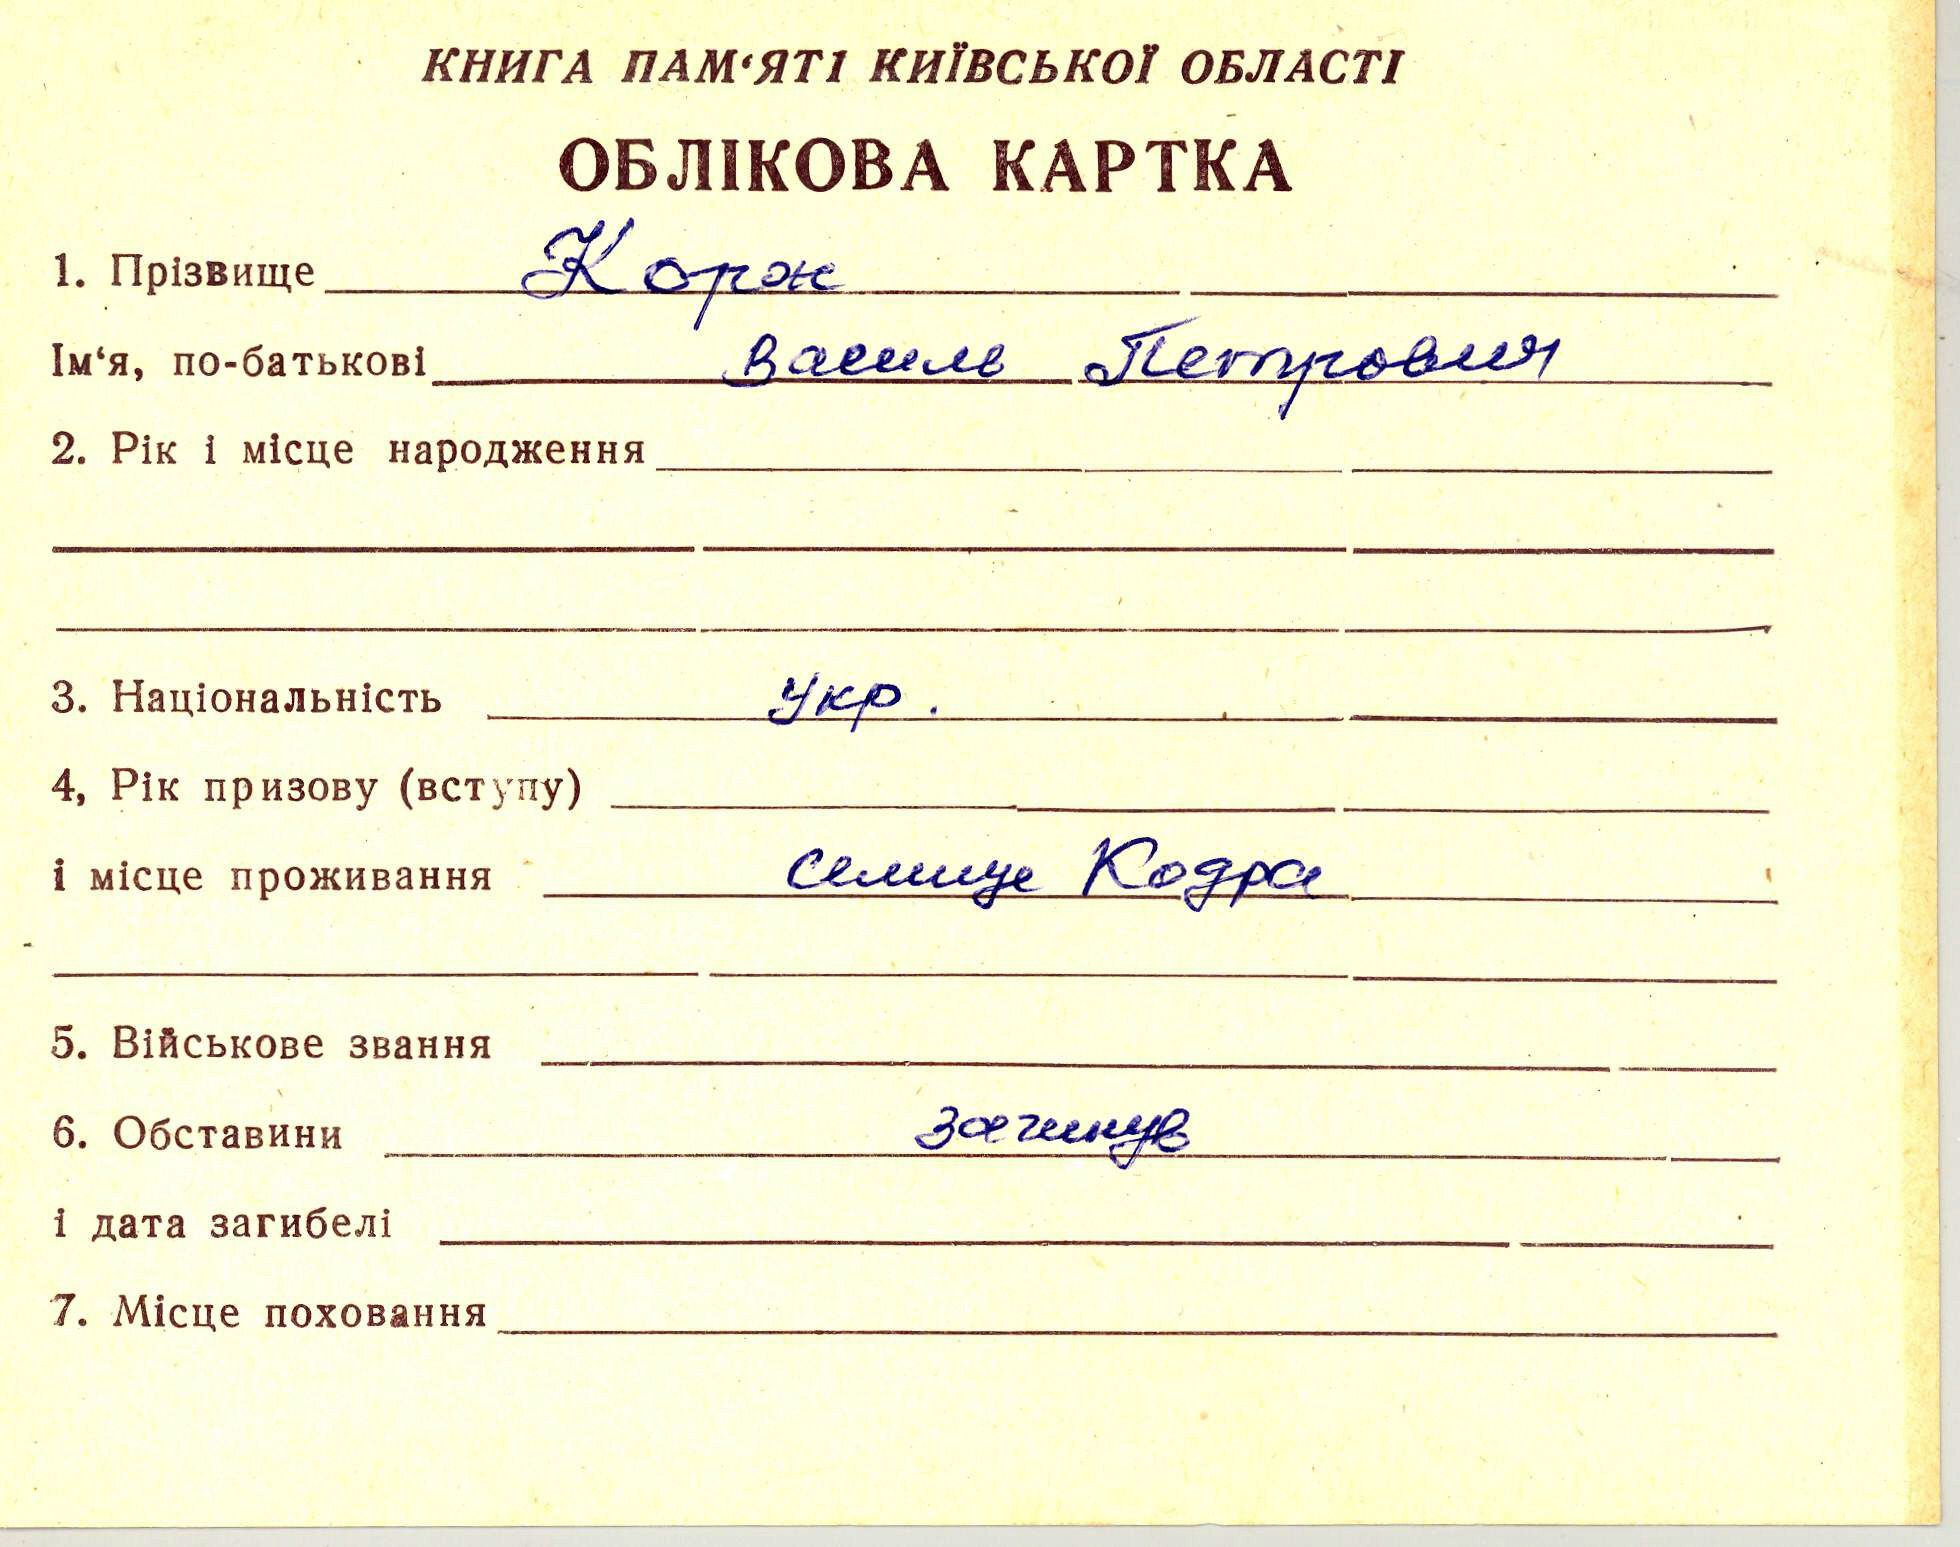 КНИГА ПАМ‘ЯТІ КИЇВСЬКОЇ ОБЛАСТІ
ОБЛІКОВА КАРТКА
1. Прізвище Корж
Ім‘я, по-батькові Василь Петрович
2. Рік і місце народження
3. Національність укр.
4, Рік призову (вступу)
і місце проживання селище Кодра
5. Військове звання
6. Обставини загинув
і дата загибелі
7. Місце поховання